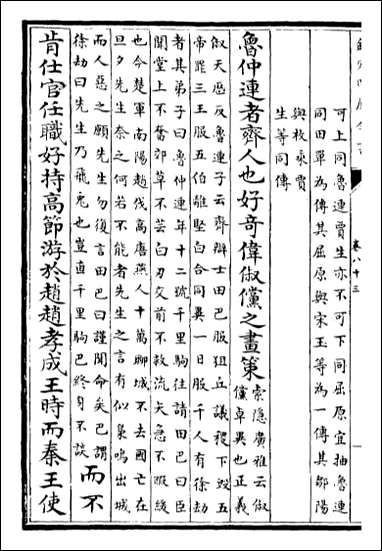 欽定四庫全書
卷八十三
可上同魯連賈生亦不可下同屈原宜抽魯連
同田單為傳其屈原與宋玉等為一傳其鄒陽
與枚乘賈
生等同傳
魯仲連者齊人也好奇偉俶儻之畫策
索隱廣雅云俶
儻卓異也正義
俶天歴反魯連子云齊辯士田巴服狙丘議稷下毁五
帝罪三王服五伯離堅白合同異一日服千人有徐劫
者其弟子曰魯仲連年十二號千里駒往請田巴曰臣
聞堂上不奮郊草不芸白刃交前不救流矢急不暇緩
也今楚軍南陽趙伐高唐燕人十萬聊城不去國亡在
旦夕先生奈之何若不能者先生之言有似梟鳴出城
而人惡之願先生勿復言田巴曰謹聞命矣巴謂
徐劫曰先生乃飛兎也豈直千里駒巴終身不談
而不
肯仕官任職好持高節游於趙趙孝成王時而秦王使